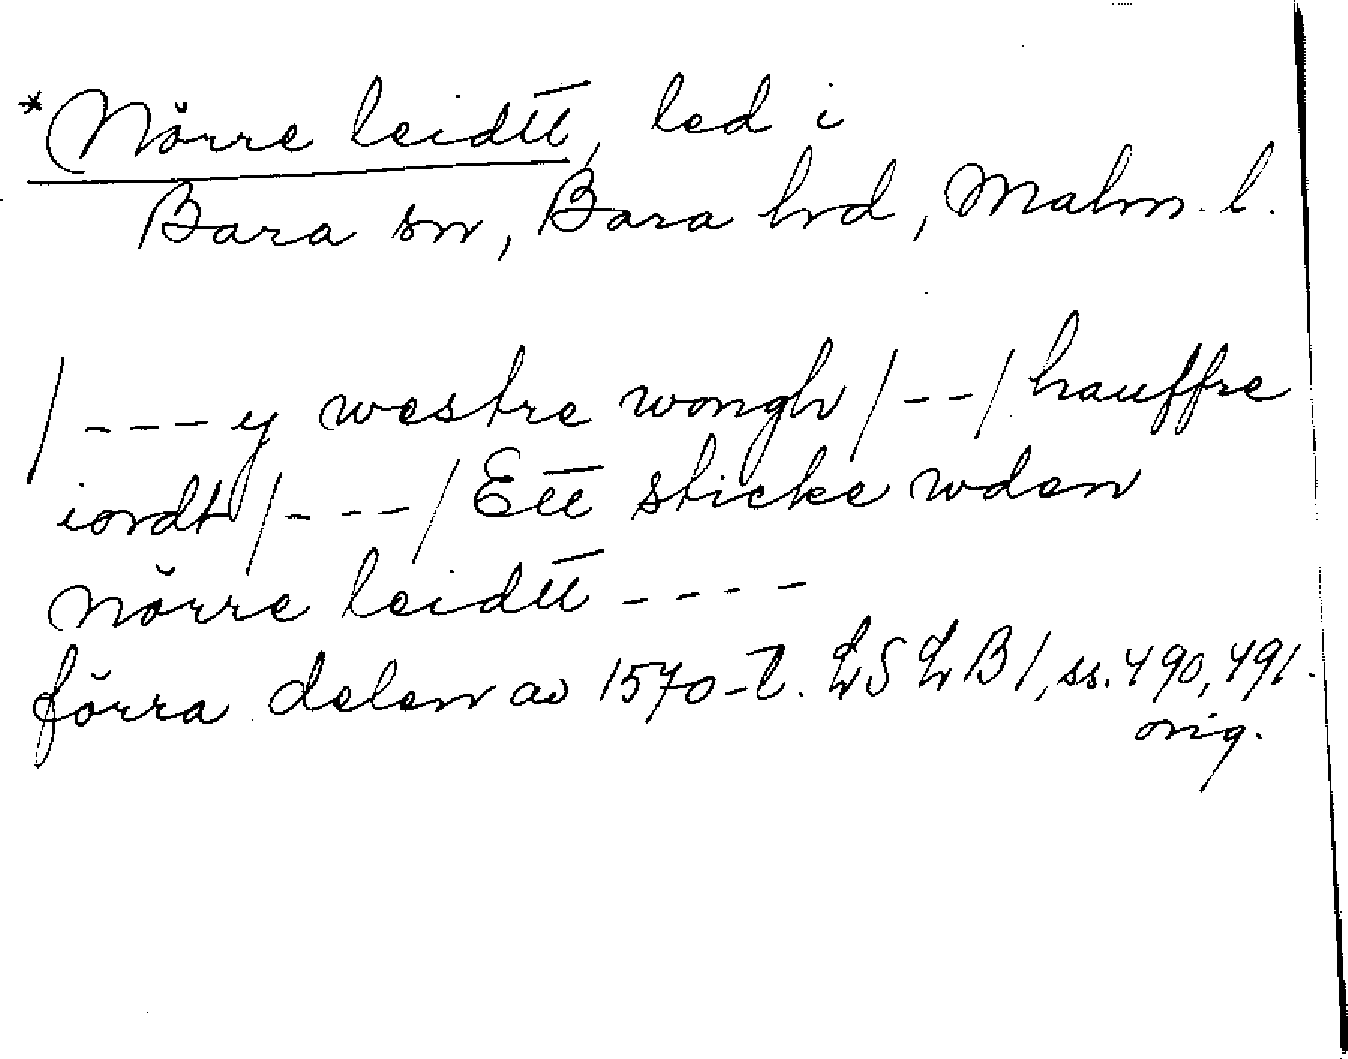 *Nŏrre leidtt, led i
Bara sn, Bara hrd, Malm. l.
/----y westre wongh/--/hauffre
iordt/----/Ett sticke wden
nŏrre leidtt ----
förra delen av 1570-t. LSLB1, ss. 490, 491.
orig.